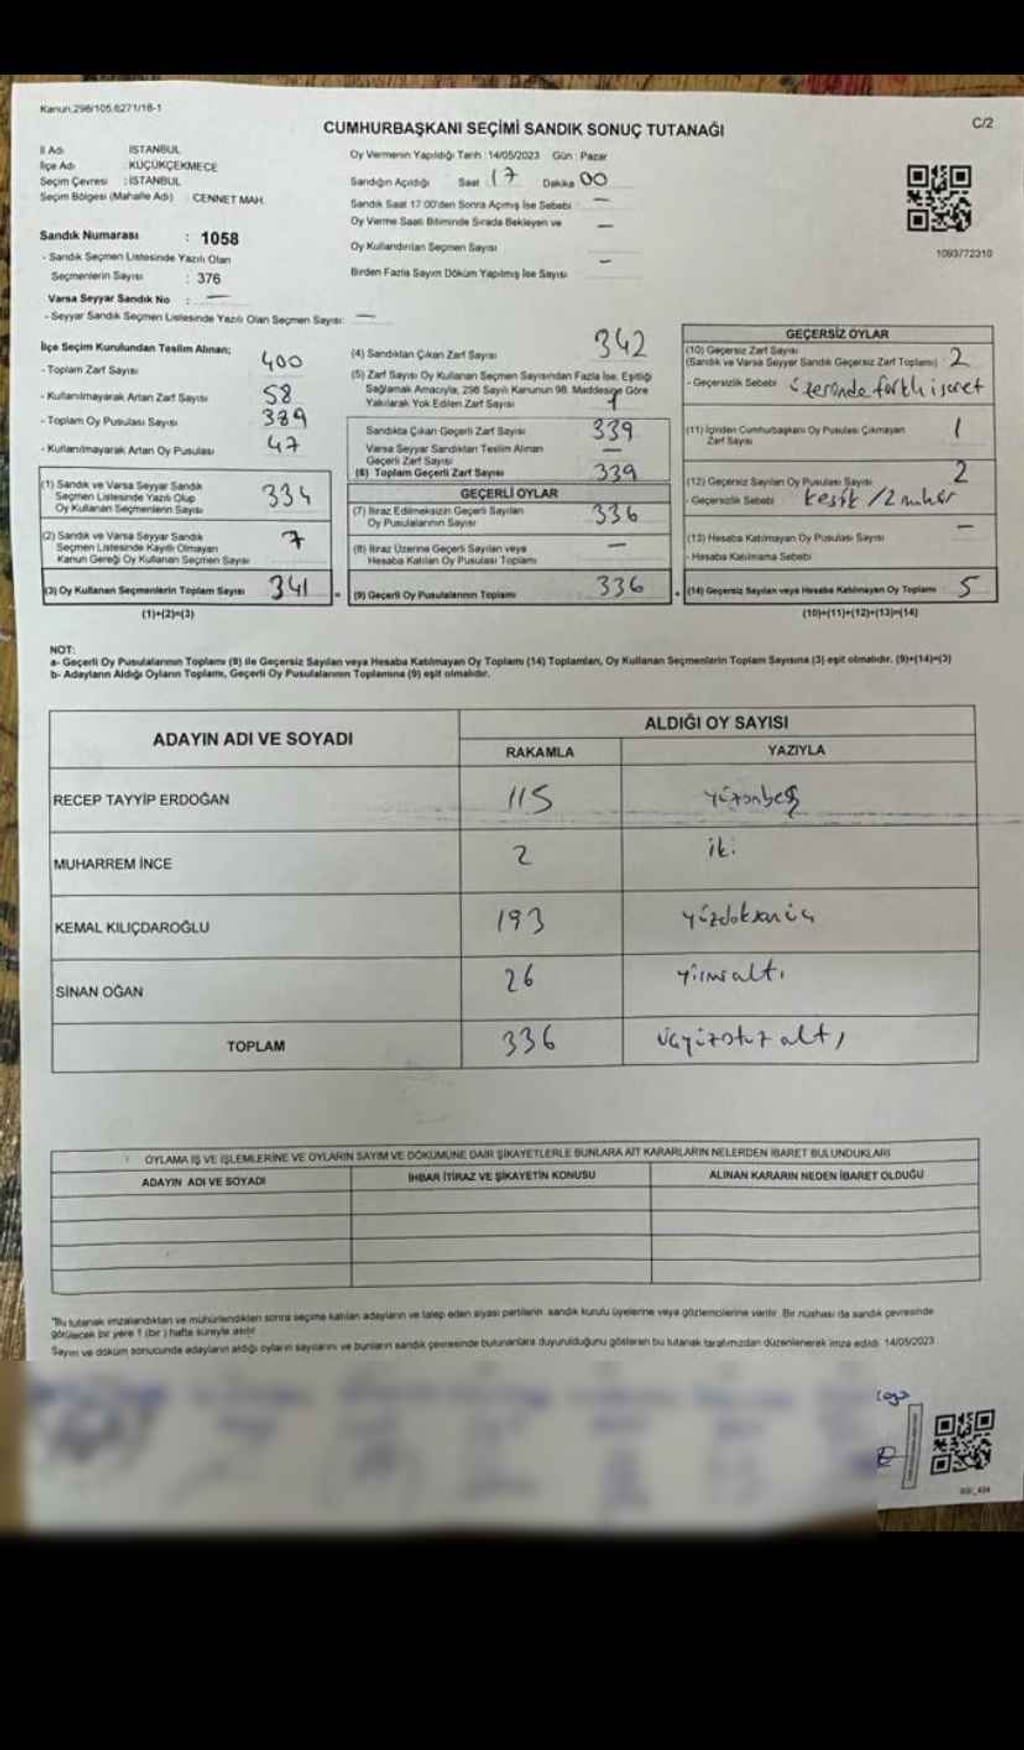 Kanun:298/105,6271/18-1
CUMHURBAŞKANI SEÇİMİ SANDIK SONUÇ TUTANAĞI
C/2
İl Adı : İSTANBUL
İlçe Adı : KÜÇÜKÇEKMECE
Seçim Çevresi : İSTANBUL
Seçim Bölgesi (Mahalle Adı) CENNET MAH.
Oy Vermenin Yapıldığı Tarih :14/05/2023 Gün : Pazar
Sandığın Açıldığı Saat : 17 Dakika 00
Sandık Saat 17:00'den Sonra Açımış İse Sebebi : —
Oy Verme Saati Bitiminde Sırada Bekleyen ve —
Oy Kullandırılan Seçmen Sayısı
Birden Fazla Sayım Döküm Yapılmış İse Sayısı —
1093772310
Sandık Numarası : 1058
- Sandık Seçmen Listesinde Yazılı Olan
Seçmenlerin Sayısı : 376
Varsa Seyyar Sandık No : —
- Seyyar Sandık Seçmen Listesinde Yazılı Olan Seçmen Sayısı: —
İlçe Seçim Kurulundan Teslim Alınan;
- Toplam Zarf Sayısı 400
- Kullanılmayarak Artan Zarf Sayısı 58
- Toplam Oy Pusulası Sayısı 389
- Kullanılmayarak Artan Oy Pusulası 47
(1) Sandık ve Varsa Seyyar Sandık
Seçmen Listesinde Yazılı Olup
Oy Kullanan Seçmenlerin Sayısı 334
(2) Sandık ve Varsa Seyyar Sandık
Seçmen Listesinde Kayıtlı Olmayan
Kanun Gereği Oy Kullanan Seçmen Sayısı 7
(3) Oy Kullanan Seçmenlerin Toplam Sayısı 341
(1)+(2)=(3)
(4) Sandıktan Çıkan Zarf Sayısı 342
(5) Zarf Sayısı Oy Kullanan Seçmen Sayısından Fazla İse, Eşitliği
Sağlamak Amacıyla, 298 Sayılı Kanunun 98. Maddesine Göre
Yakılarak Yok Edilen Zarf Sayısı 1
Sandıkta Çıkan Geçerli Zarf Sayısı 339
Varsa Seyyar Sandıktan Teslim Alınan
Geçerli Zarf Sayısı —
(6) Toplam Geçerli Zarf Sayısı 339
GEÇERLİ OYLAR
(7) İtiraz Edilmeksizin Geçerli Sayılan
Oy Pusulalarının Sayısı 336
(8) İtiraz Üzerine Geçerli Sayılan veya
Hesaba Katılan Oy Pusulası Toplamı —
(9) Geçerli Oy Pusulalarının Toplamı 336
GEÇERSİZ OYLAR
(10) Geçersiz Zarf Sayısı
(Sandık ve Varsa Seyyar Sandık Geçersiz Zarf Toplamı) 2
- Geçersizlik Sebebi üzerinde farklı işaret
(11) İçinden Cumhurbaşkanı Oy Pusulası Çıkmayan
Zarf Sayısı 1
(12) Geçersiz Sayılan Oy Pusulası Sayısı 2
- Geçersizlik Sebebi kesik /2 mühür
(13) Hesaba Katılmayan Oy Pusulası Sayısı —
- Hesaba Katılmama Sebebi
(14) Geçersiz Sayılan veya Hesaba Katılmayan Oy Toplamı 5
(10)+(11)+(12)+(13)=(14)
NOT:
a- Geçerli Oy Pusulalarının Toplamı (9) ile Geçersiz Sayılan veya Hesaba Katılmayan Oy Toplamı (14) Toplamları, Oy Kullanan Seçmenlerin Toplam Sayısına (3) eşit olmalıdır. (9)+(14)=(3)
b- Adayların Aldığı Oyların Toplamı, Geçerli Oy Pusulalarının Toplamına (9) eşit olmalıdır.
ADAYIN ADI VE SOYADI
ALDIĞI OY SAYISI
RAKAMLA YAZIYLA
RECEP TAYYİP ERDOĞAN 115 yüzonbeş
MUHARREM İNCE 2 iki
KEMAL KILIÇDAROĞLU 193 yüzdoksanüç
SİNAN OĞAN 26 yirmialtı
TOPLAM 336 üçyüzotuzaltı
OYLAMA İŞ VE İŞLEMLERİNE VE OYLARIN SAYIM VE DÖKÜMÜNE DAİR ŞİKAYETLERLE BUNLARA AİT KARARLARIN NELERDEN İBARET BULUNDUKLARI
ADAYIN ADI VE SOYADI İHBAR İTİRAZ VE ŞİKAYETİN KONUSU ALINAN KARARIN NEDEN İBARET OLDUĞU
"Bu tutanak imzalandıktan ve mühürlendikten sonra seçime katılan adayların ve talep eden siyasi partilerin sandık kurulu üyelerine veya gözlemcilerine verilir. Bir nüshası da sandık çevresinde
görülecek bir yere 1 (bir) hafta süreyle asılır
Sayım ve döküm sonucunda adayların aldığı oyların sayılarını ve bunların sandık çevresinde bulunanlara duyurulduğunu gösteren bu tutanak tarafımızdan düzenlenerek imza edildi. 14/05/2023